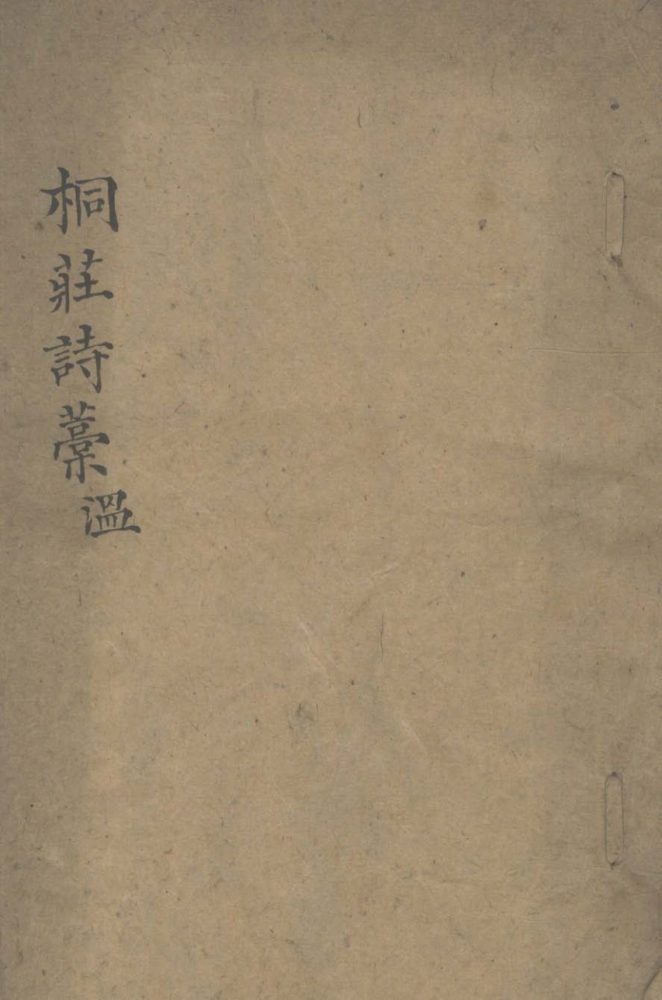 桐莊詩藁溫